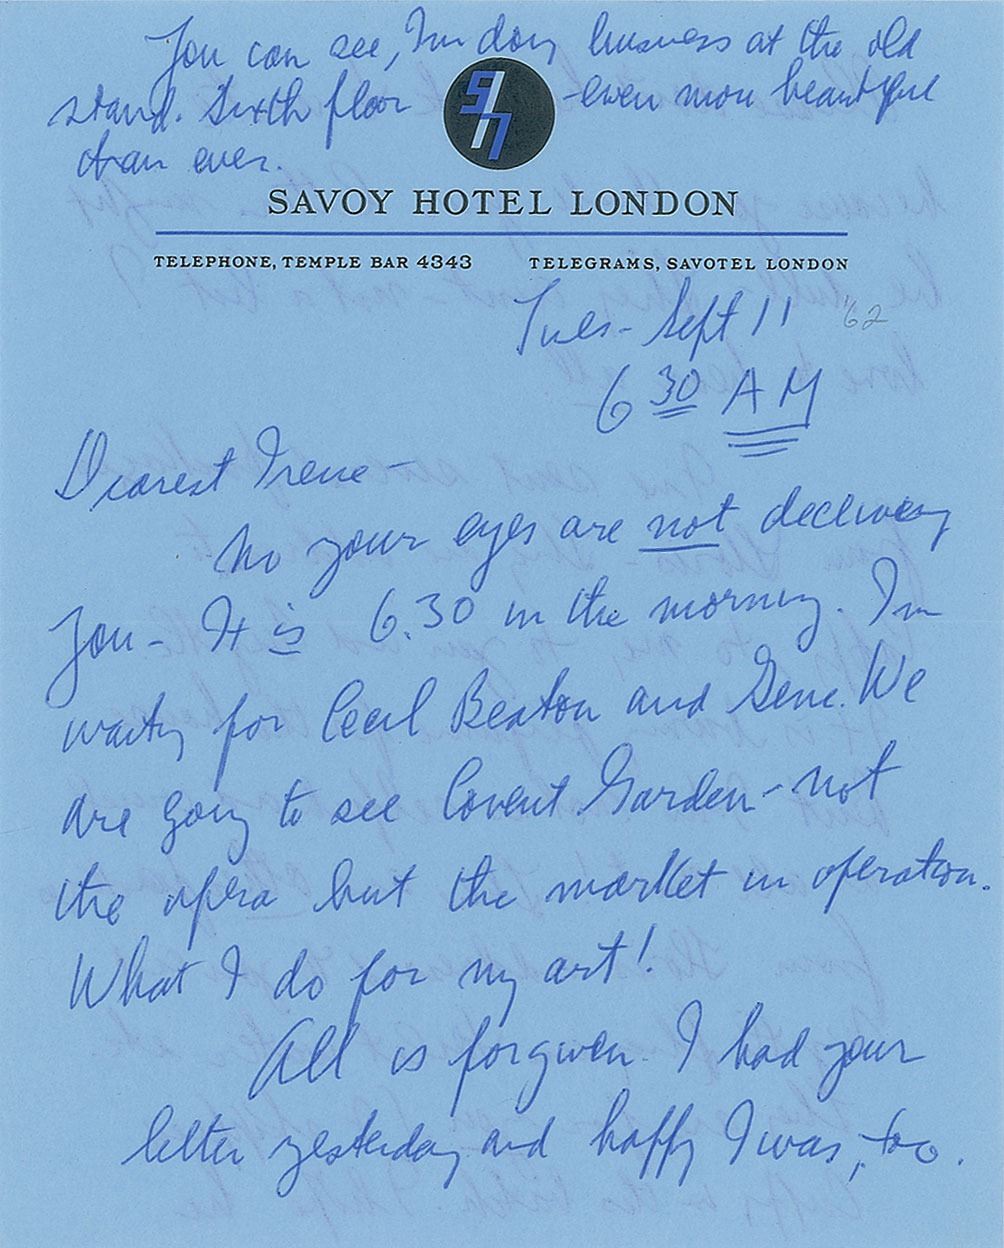 You can see, I'm doing business at the old
stand. Sixth floor -even more beautiful
than ever.
SAVOY HOTEL LONDON
TELEPHONE, TEMPLE BAR 4343 TELEGRAMS, SAVOTEL LONDON
Tues- Sept 11 '62
6 30 AM
Dearest Irene-
No your eyes are not deceiving
you- It is 6.30 in the morning. I'm
waiting for Cecil Beaton and Gene. We
are going to see Covent Garden-not
the opera but the market in operation.
What I do for my art!
All is forgiven. I had your
letter yesterday and happy I was, too.